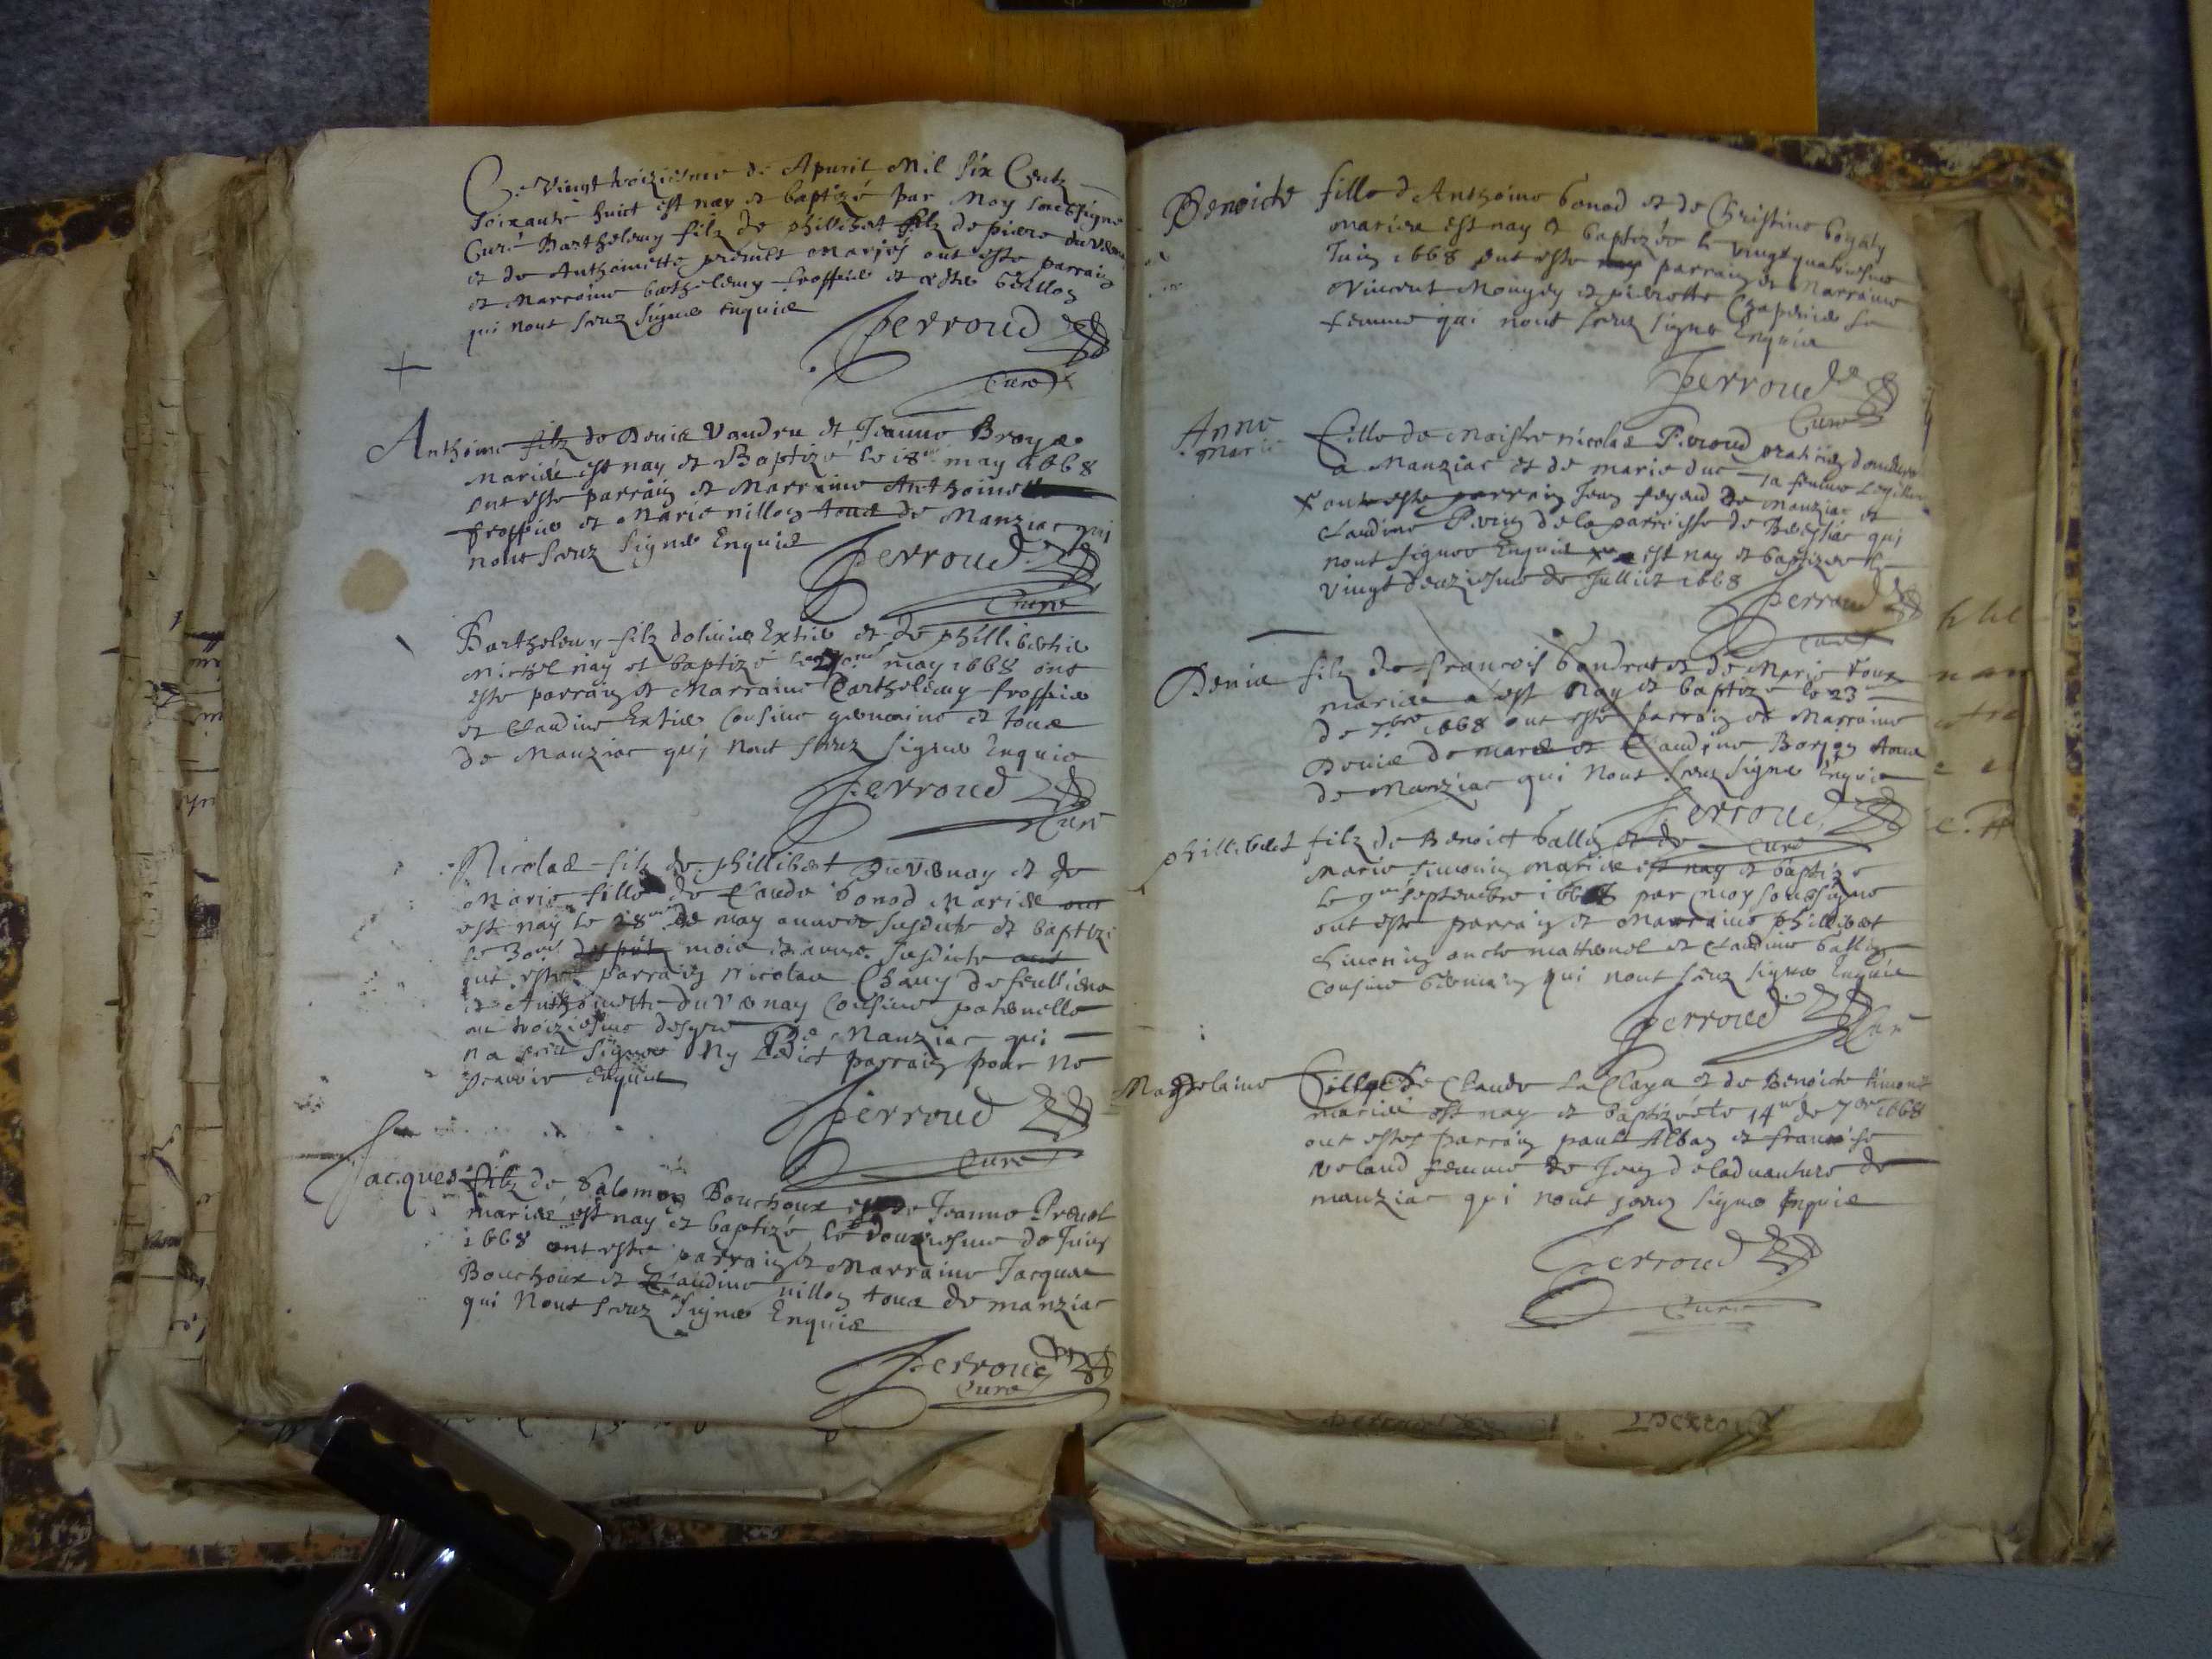 Ce Vingt troiziesme de Apuril Mil Six Centz
soixante huict est nay et baptizé par Moy soubsigné
Curé Barthelemy filz de phillibert filz de piere duVern
et de Anthoinette premet Mariés ont este parrain
et Marraine barthelemy froppie et
qui nont sceuz signe Enquis
Perroud
Curé
Anthoine filz de Denis Vandru et Jeanne Broya
Mariés est nay et Baptizé le 18me may 1668
ont este parrain et Marraine Anthoine
froppie et Marie nillon tous de Manziac qui
nont sceuz signe Enquis
Perroud
Curé
Barthelemy filz dolivie Extrie et de phillibertie
Michel nay et baptizé may 1668 ont
este parrain et Marraine Barthelemy froppie
et Claudine Extrie Cousine germaine et tous
de Manziac qui nont sceuz signe Enquis
Perroud
Curé
Nicolas filz de phillibert DuVernay et de
Marie fille de Claude bonod Mariés
est nay le 28me de may annee susdicte et baptizé
le 30me mois et annee susdicte
ont este parrain Nicolas Chany de feulliens
et Anthoinette duVernay Cousine paternelle
au troiziesme degre De Manziac qui
na sceu signer Ny Ledict parrain pour ne
scavoir Enquis
Perroud
Curé
Jacques filz de Salomon Bouchoux et de Jeanne Preuot
mariés est nay et baptizé le douziesme de Juin
1668 ont este parrain et Marraine Jacques
Bouchoux et Claudine nillon tous de manziac
qui Nont sceuz signe Enquis
Perroud
Curé
Benoicte fille dAnthoine bonod et de Christine
mariés est nay et baptizée le vingt quatriesme
Juin 1668 ont este parrain et Marraine
Vincent Mongey et pierrette Chapuis sa
femme qui nont sceuz signe Enquis
Perroud
Curé
Anne Marie
fille de Maistre nicolas Peroud praticien
a Manziac et de marie duc sa femme
ont este parrain Jean de Manziac et
Claudine de la parroisse de qui
nont signer Enquis est nay et baptizee le
vingt deuziesme de Julliet 1668
Perroud
Curé
Denis filz de francois bondrat et de Marie
mariés est Nay et baptizé le 23
de 7bre 1668 ont este parrain et Marraine
Denis de mare et Claudine Borjon tous
de Manziac qui Nont sceuz signe Enquis
Perroud
Curé
phillibert filz de Benoict ballin et de
Marie Simonin mariés est nay et baptizé
le 9me septembre 1668 par moy soussigné
ont este parrain et Marraine phillibert
Simonin oncle maternel et Claudine ballin
cousine Germain qui nont sceuz signe Enquis
Perroud
Curé
Magdelaine fille de Claude La Claya et de Benoicte Simonin
mariés est nay et baptizée le 14me de 7bre 1668
ont estes parrain paul Alban et francoise
veland femme de Jean deladuanture de
manziac qui nont sceuz signe Enquis
Perroud
Curé